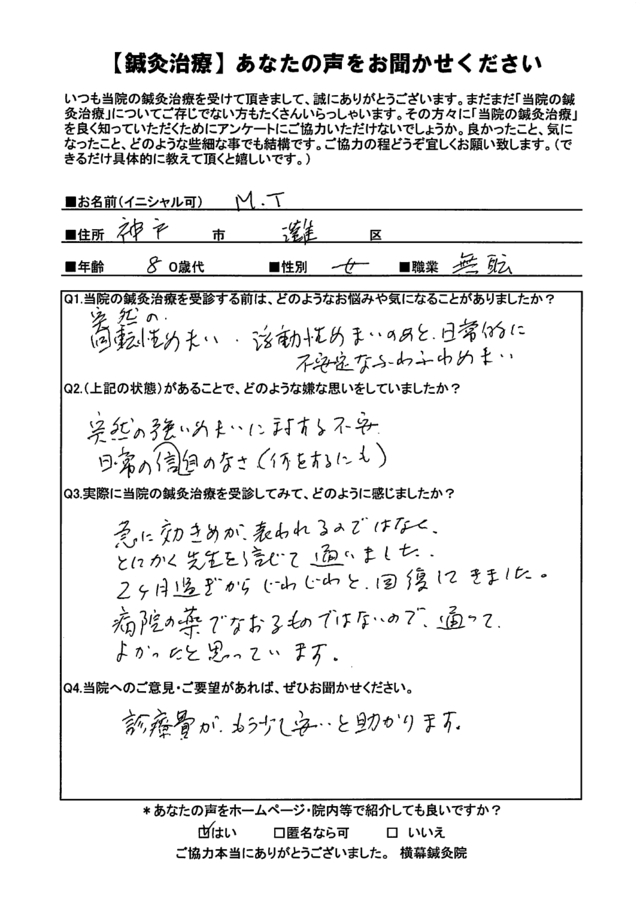 【鍼灸治療】あなたの声をお聞かせください
いつも当院の鍼灸治療を受けて頂きまして、誠にありがとうございます。まだまだ「当院の鍼
灸治療」についてご存じでない方もたくさんいらっしゃいます。その方々に「当院の鍼灸治療」
を良く知っていただくためにアンケートにご協力いただけないでしょうか。良かったこと、気に
なったこと、どのような些細な事でも結構です。ご協力の程どうぞ宜しくお願い致します。(で
きるだけ具体的に教えて頂くと嬉しいです。)
■お名前(イニシャル可) M.T
■住所 神戸 市 灘 区
■年齢 8 0歳代 ■性別 女 ■職業 無職
Q1.当院の鍼灸治療を受診する前は、どのようなお悩みや気になることがありましたか?
突然の
回転性めまい・浮動性めまいのあと、日常的に
不安定なふわふわめまい
Q2.(上記の状態)があることで、どのような嫌な思いをしていましたか?
突然の強いめまいに対する不安
日常の自信のなさ(何をするにも)
Q3.実際に当院の鍼灸治療を受診してみて、どのように感じましたか?
急に効きめが、表われるのではなく、
とにかく先生を信じて通いました。
2ヶ月過ぎからじわじわと、回復してきました。
病院の薬でなおるものではないので、通って、
よかったと思っています。
Q4.当院へのご意見・ご要望があれば、ぜひお聞かせください。
診療費が、もう少し安いと助かります。
*あなたの声をホームページ・院内等で紹介しても良いですか?
☑はい □匿名なら可 □ いいえ
ご協力本当にありがとうございました。 横幕鍼灸院